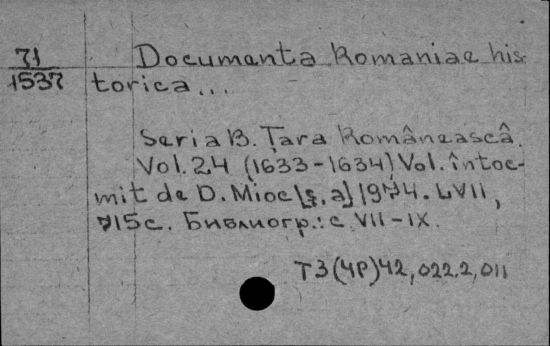 71
1537
Documenta Romaniae his-
torica...
Seria B. Țara Românească.
Vol. 24 (1633-1634) Vol. întoc-
mit de D. Mioc [ș. a] 1974. LVII,
715c. Библиогр.: с. VII-IX.
T3(4P)42,022.2,011